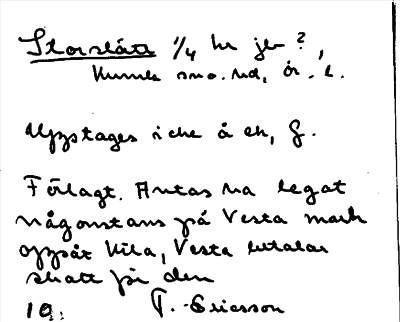 Storslått 1/4 hr jb ?,
Kumla sno. hd, ör. l.
Uppstages icke å ek, G.
Förlagt. Antas ha legat
någonstans på Vesta mark
uppåt Kila, Vesta betalar
skatt för den
19. T. Ericsson